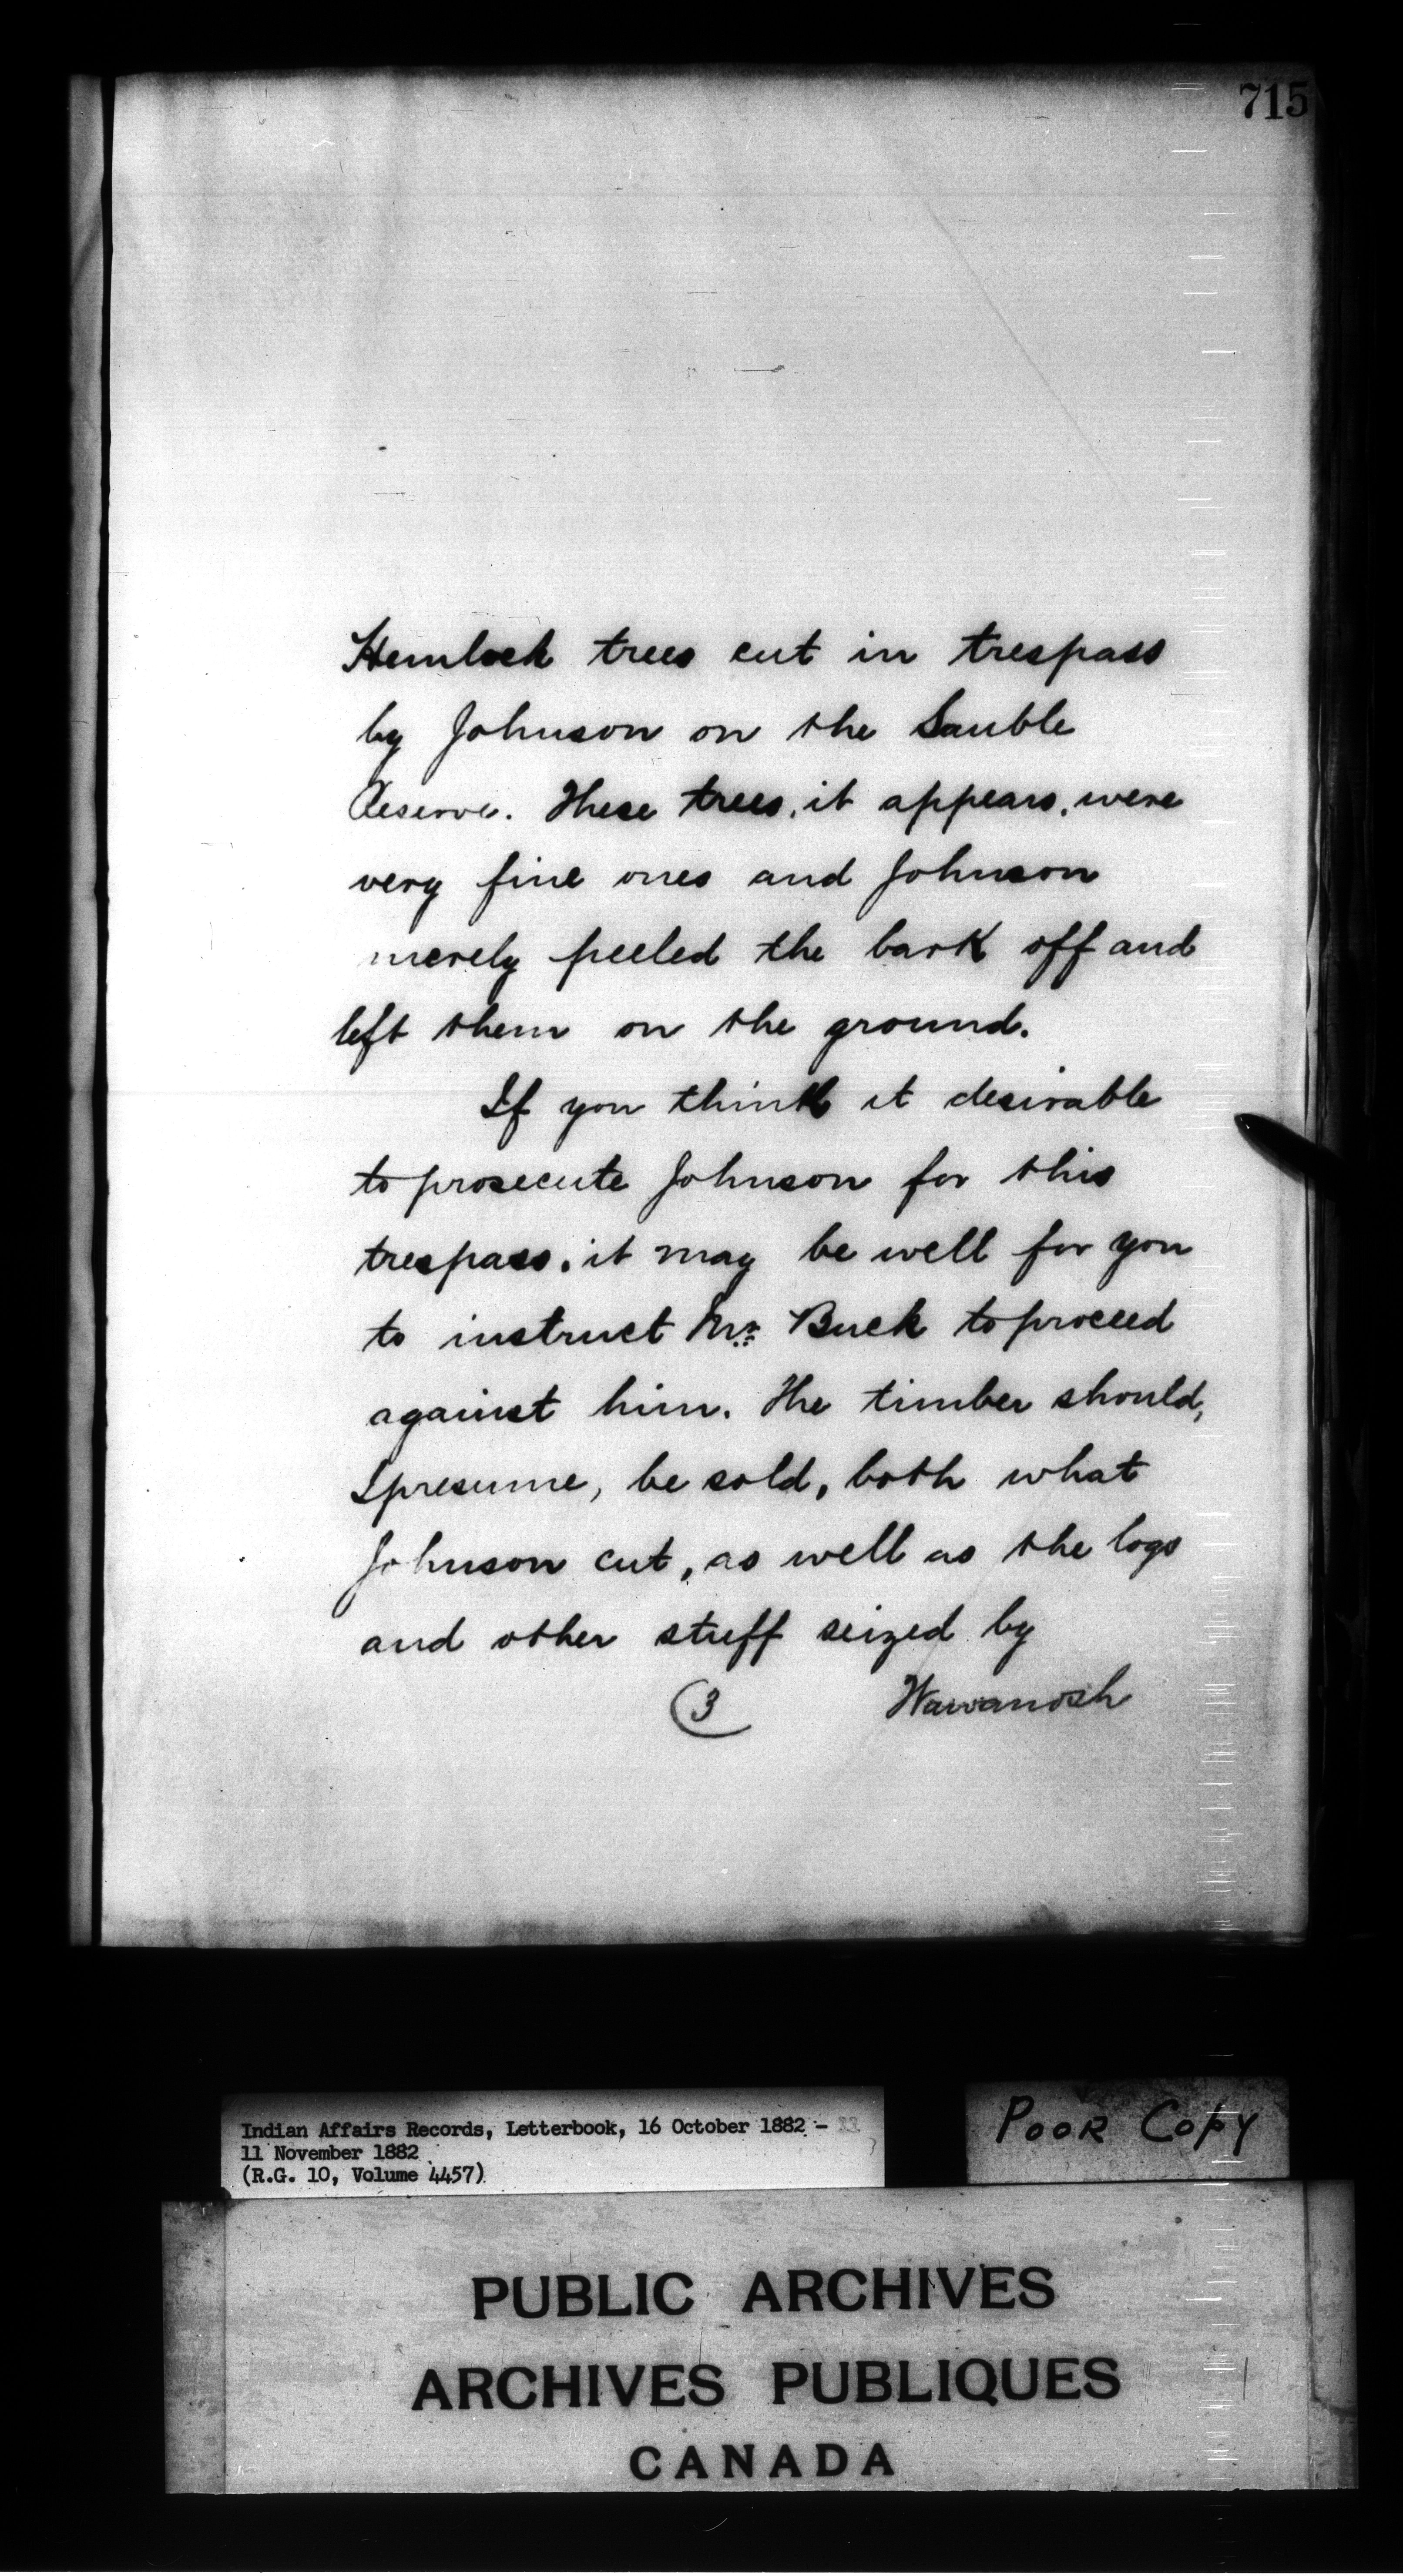 715
Hemlock trees cut in trespass
by Johnson on the Sauble
Reserve. These trees, it appears, were
very fine ones and Johnson
merely peeled the bark off and
left them on the ground.
If you think it desirable
to prosecute Johnson for this
trespass, it may be well for you
to instruct Mr. Buck to proceed
against him. The timber should,
I presume, be sold, both what
Johnson cut, as well as the logs
and other stuff seized by
(3 Wawanosh
Indian Affairs Records, Letterbook, 16 October 1882 -
11 November 1882
(R.G. 10, Volume 4457)
POOR COPY
PUBLIC ARCHIVES
ARCHIVES PUBLIQUES
CANADA